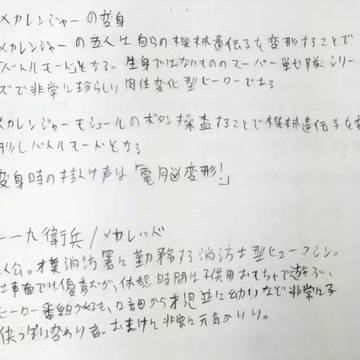 メカレンジャーの変身
メカレンジャーの五人は自らの機械遺伝子を変形することで
「バトルモード」となる。生身ではないもののスーパー戦隊シリー
ズで非常に珍しい肉体変化型ヒーローである
メカレンジャーモジュールのボタン操査することで機械遺伝子を変
形しバトルモードとなる
変身時の掛け声は「電脳変形!」
一九衛兵/メカレッド
人公。横消防署に勤務する消防士型ヒューマシン。
仕事面では優秀だが、休憩時間は子供用おもちゃで遊ぶ、
ヒーロー番組が好き、口調から才児並に幼いなど非常に子
供っぽい変わり者。おまけに非常に元気